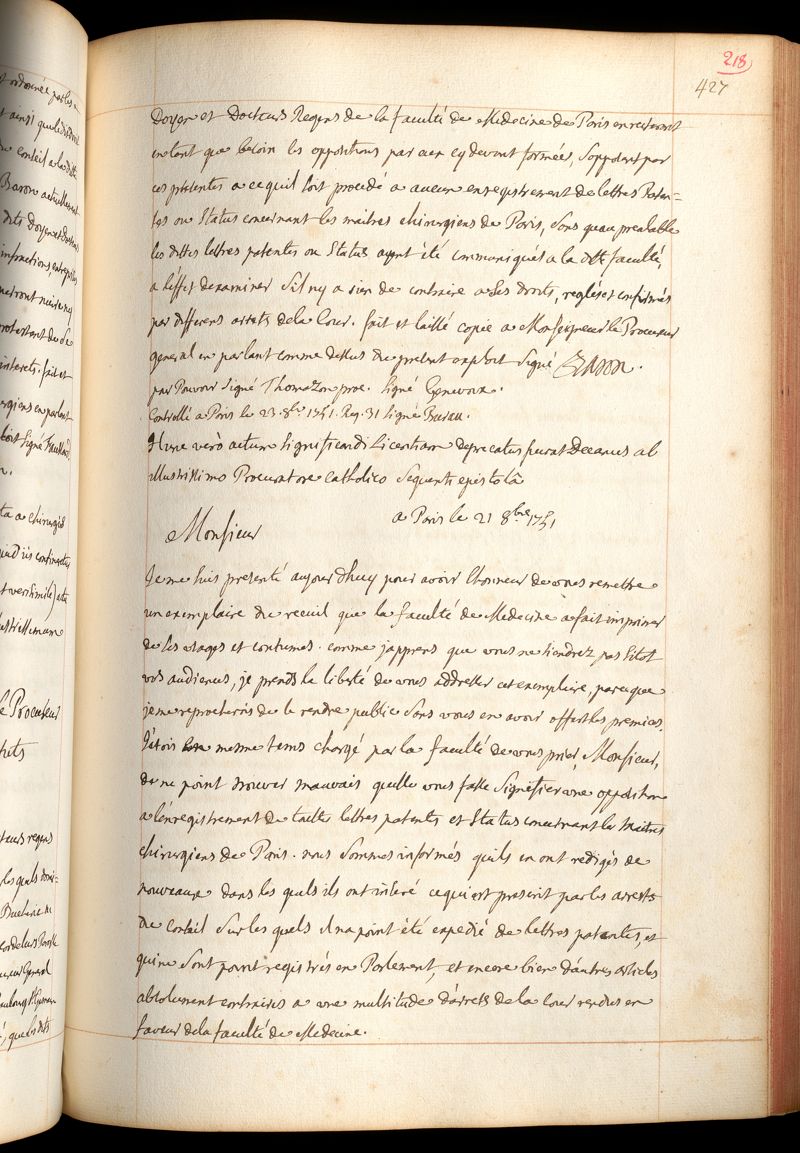 218
427
Doyen et Docteurs Regens de la faculté de Medecine de Paris en reiterant
en tant que besoin les oppositions par eux cy devant formée, s'opposent par
ces présentes a ce quil soit procedé a aucun enregistrement de lettres Paten=
tes ou Statuts concernant les maitres chirurgiens de Paris, sans quau prealable
les dittes lettres patentes ou Statuts ayent été communiqués a la ditte faculté,
a l'effet d'examiner s'il ny a rien de contraire a ses droits, reglés et confirmés
par differens arrets de la Cour. fait et laissé copie a Monseigneur le Procureur
general en parlant comme dessus du present exploit signé
par Pouvoir signé Thomazon proc. signé Genevoix.
Controllé a Paris le 23. 8bre 1751. Reg. 31 signé Bureau.
Hunc verò actum significandi licentiam deprecatus fuerat Decanus ab
illustrissimo Procuratore Catholico sequenti epistolâ
a Paris le 21 8bre 1751
Monsieur
Je me suis presenté aujourdhuy pour avoir l'honneur de vous remettre
un exemplaire du recueil que la faculté de Medecine a fait imprimer
de ses usages et coutumes. comme japprens que vous ne tiendrez pas sitot
vos audiences, je prends la liberté de vous addresser cet exemplaire, parceque
je me reprocherois de le rendre public sans vous en avoir offert les premices.
J'étois en mesme tems chargé par la faculté de vous prier, Monsieur,
de ne point trouver mauvais quelle vous fasse signifier une opposition
a l'énregistrement de toutes lettres patentes et Statuts concernant les Maitres
chirurgiens de Paris. nous sommes informés quils en ont redigés de
nouveaux dans les quels ils ont inseré ce qui est prescrit par les arrests
du Conseil sur les quels il na point été expedié de lettres patentes, et
qui ne sont point registrés en Parlement, et encore bien d'autres articles
absolument contraires a une multitude d'arrets de la Cour rendus en
faveur de la faculté de Medecine.